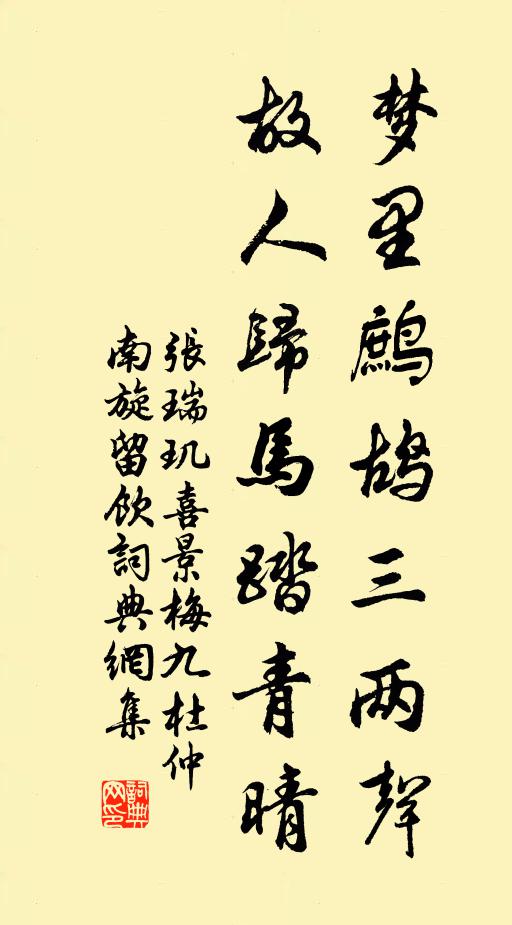 梦里鷓鴣三两聲
故人歸馬踏青晴
張瑞玑喜景梅九杜仲
南旋留飲詞典網集
詞典
网印